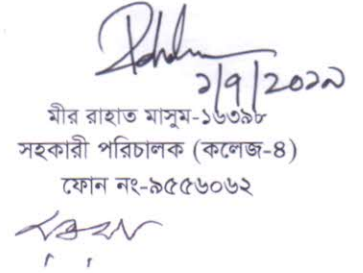 ১/৭/২০১৯
মীর রাহাত মাসুম-১৬৩৯৮
সহকারী পরিচালক (কলেজ-৪)
ফোন নং-৯৫৫৬০৬২